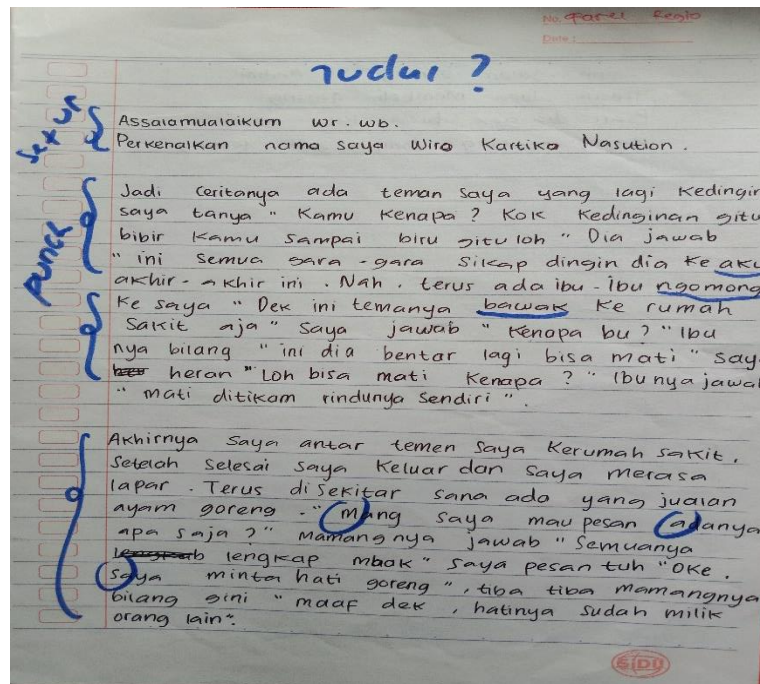 No. Farel Regio
Date :
Judul ?
Assalamualaikum wr. wb.
Perkenalkan nama saya Wiro Kartika Nasution.
Jadi ceritanya ada teman saya yang lagi kedingin
saya tanya " Kamu kenapa ? Kok kedinginan gitu
bibir kamu sampai biru gitu loh " Dia jawab
" ini semua gara - gara sikap dingin dia ke aku
akhir - akhir ini . Nah , terus ada ibu - ibu ngomong
ke saya " Dek ini temanya bawak ke rumah
sakit aja " saya jawab " kenapa bu ? " Ibu
nya bilang " ini dia bentar lagi bisa mati " say
heran " Loh bisa mati kenapa ? " Ibunya jawa
" mati ditikam rindunya sendiri " .
Akhirnya saya antar temen saya kerumah sakit .
Setelah selesai saya keluar dan saya merasa
lapar . Terus disekitar sana ada yang jualan
ayam goreng - " mang saya mau pesan adanya
apa saja ? " mamangnya jawab " Semuanya
lengkap mbak " saya pesan tuh " Oke .
saya minta hati goreng " , tiba tiba mamangnya
bilang gini " maaf dek , hatinya sudah milik
orang lain " .
SIDU